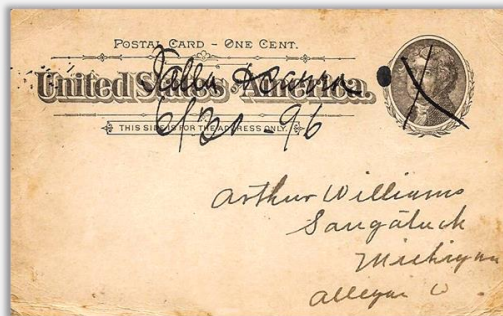 POSTAL CARD - ONE CENT.
United States of America.
THIS SIDE IS FOR THE ADDRESS ONLY.
6/30-96
Arthur Williams
Saugatuck
Michigan
Allegan Co